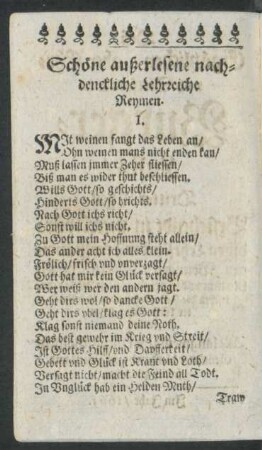 Schöne außerlesene nach-
denckliche Lehrreiche
Reymen.
I.
MIt weinen fangt das Leben an/
Ohn weinen mans nicht enden kan/
Muß lassen immer Zeher fliessen/
Biß man es wider thut beschliessen.
Wills Gott/so geschichts/
Hinderts Gott/so brichts.
Nach Gott ichs richt/
Sonst will ichs nicht.
Zu Gott mein Hoffnung steht allein/
Das ander acht ich alles klein.
Frölich/frisch vnd vnverzagt/
Gott hat mir kein Glück versagt/
Wer weiß wer den andern jagt.
Geht dirs wol/so dancke Gott/
Geht dirs vbel/klag es Gott:
Klag sonst niemand deine Noth.
Das best gewehr im Krieg vnd Streit/
Ist Gottes Hilff/vnd Dapfferkeit/
Gebett vnd Glück ist Kraut vnd Loth/
Versagt nicht/macht die Feind all Todt.
In Vnglück hab ein Helden Muth/
Traw